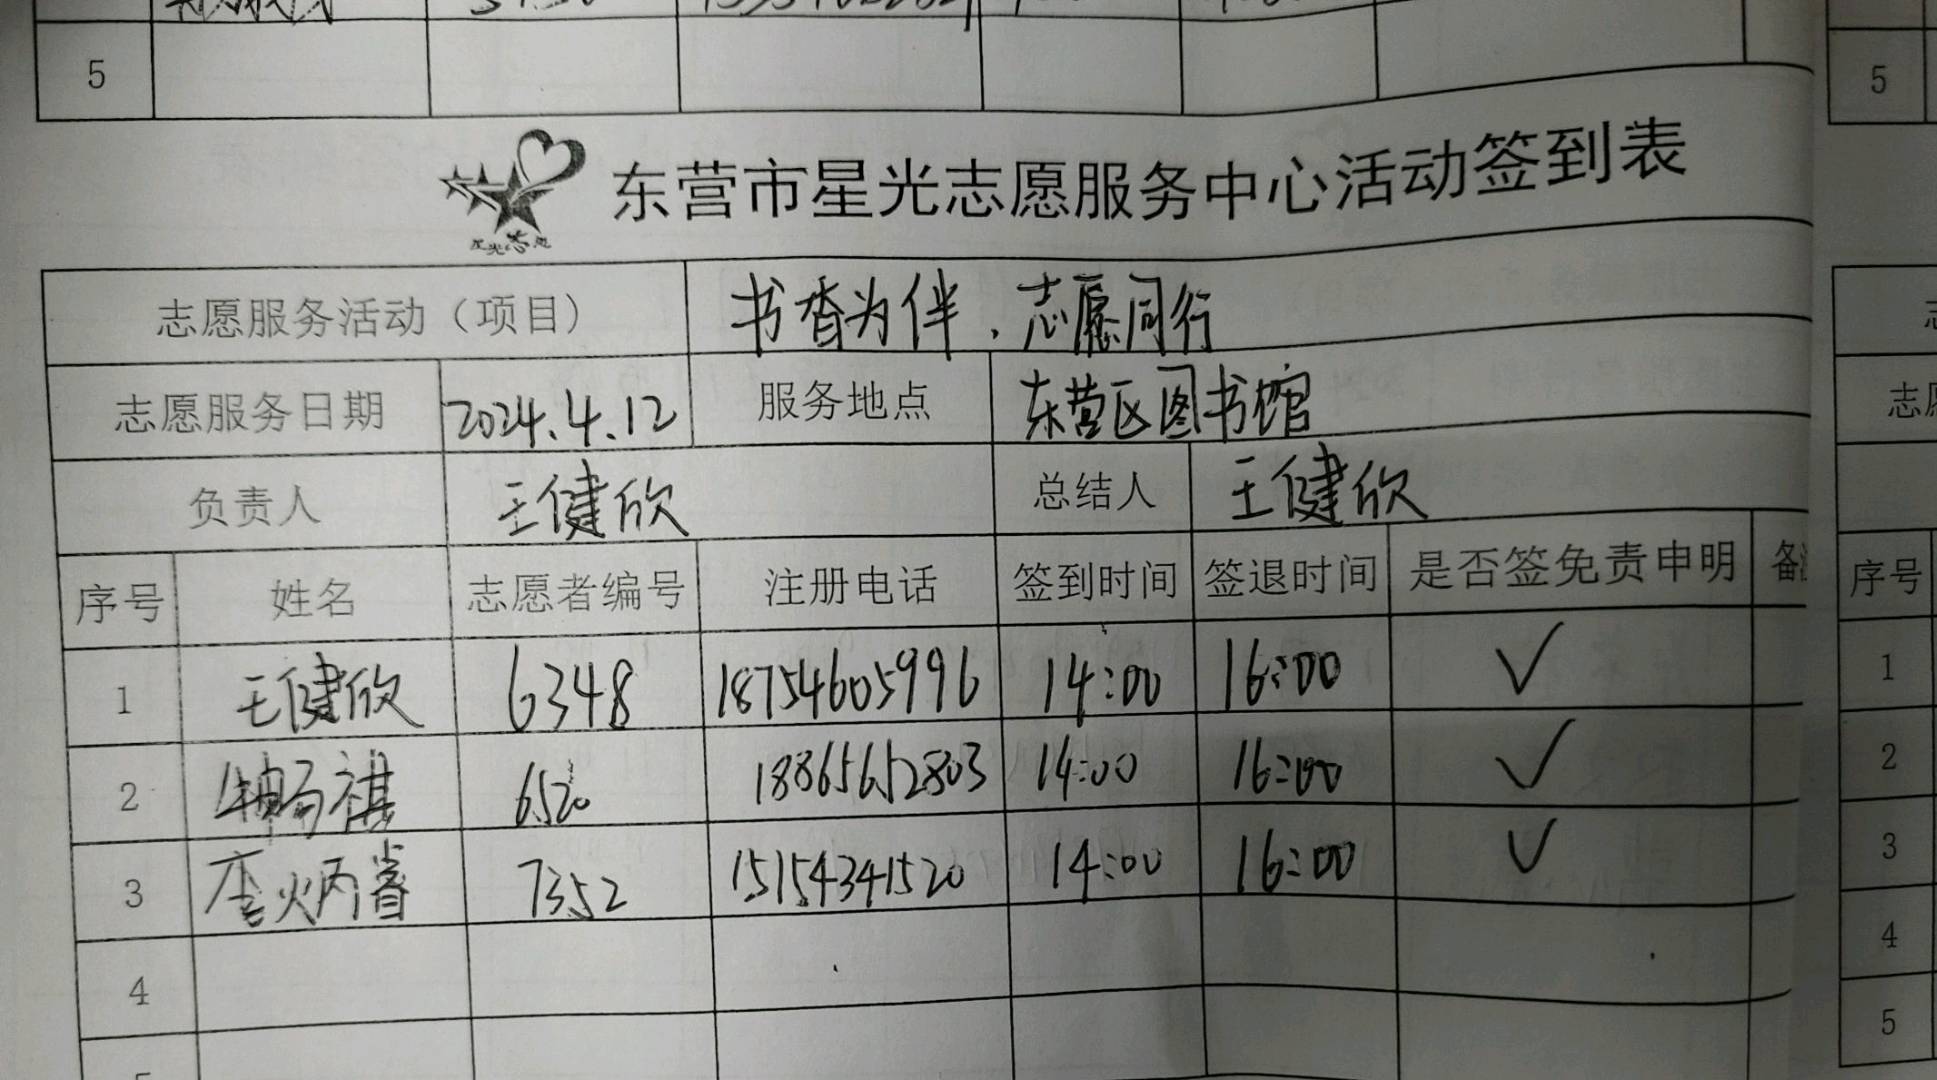 5
5
星光志愿
东营市星光志愿服务中心活动签到表
志愿服务活动（项目） 书香为伴、志愿同行
志愿服务日期 2024.4.12 服务地点 东营区图书馆 志愿
负责人 王健欣 总结人 王健欣
序号 姓名 志愿者编号 注册电话 签到时间 签退时间 是否签免责申明 备注 序号
1 王健欣 6348 18754605996 14:00 16:00 ✓ 1
2 畅祺 6520 18865652803 14:00 16:00 ✓ 2
3 炳睿 7352 15154341520 14:00 16:00 ✓ 3
4 4
5 5